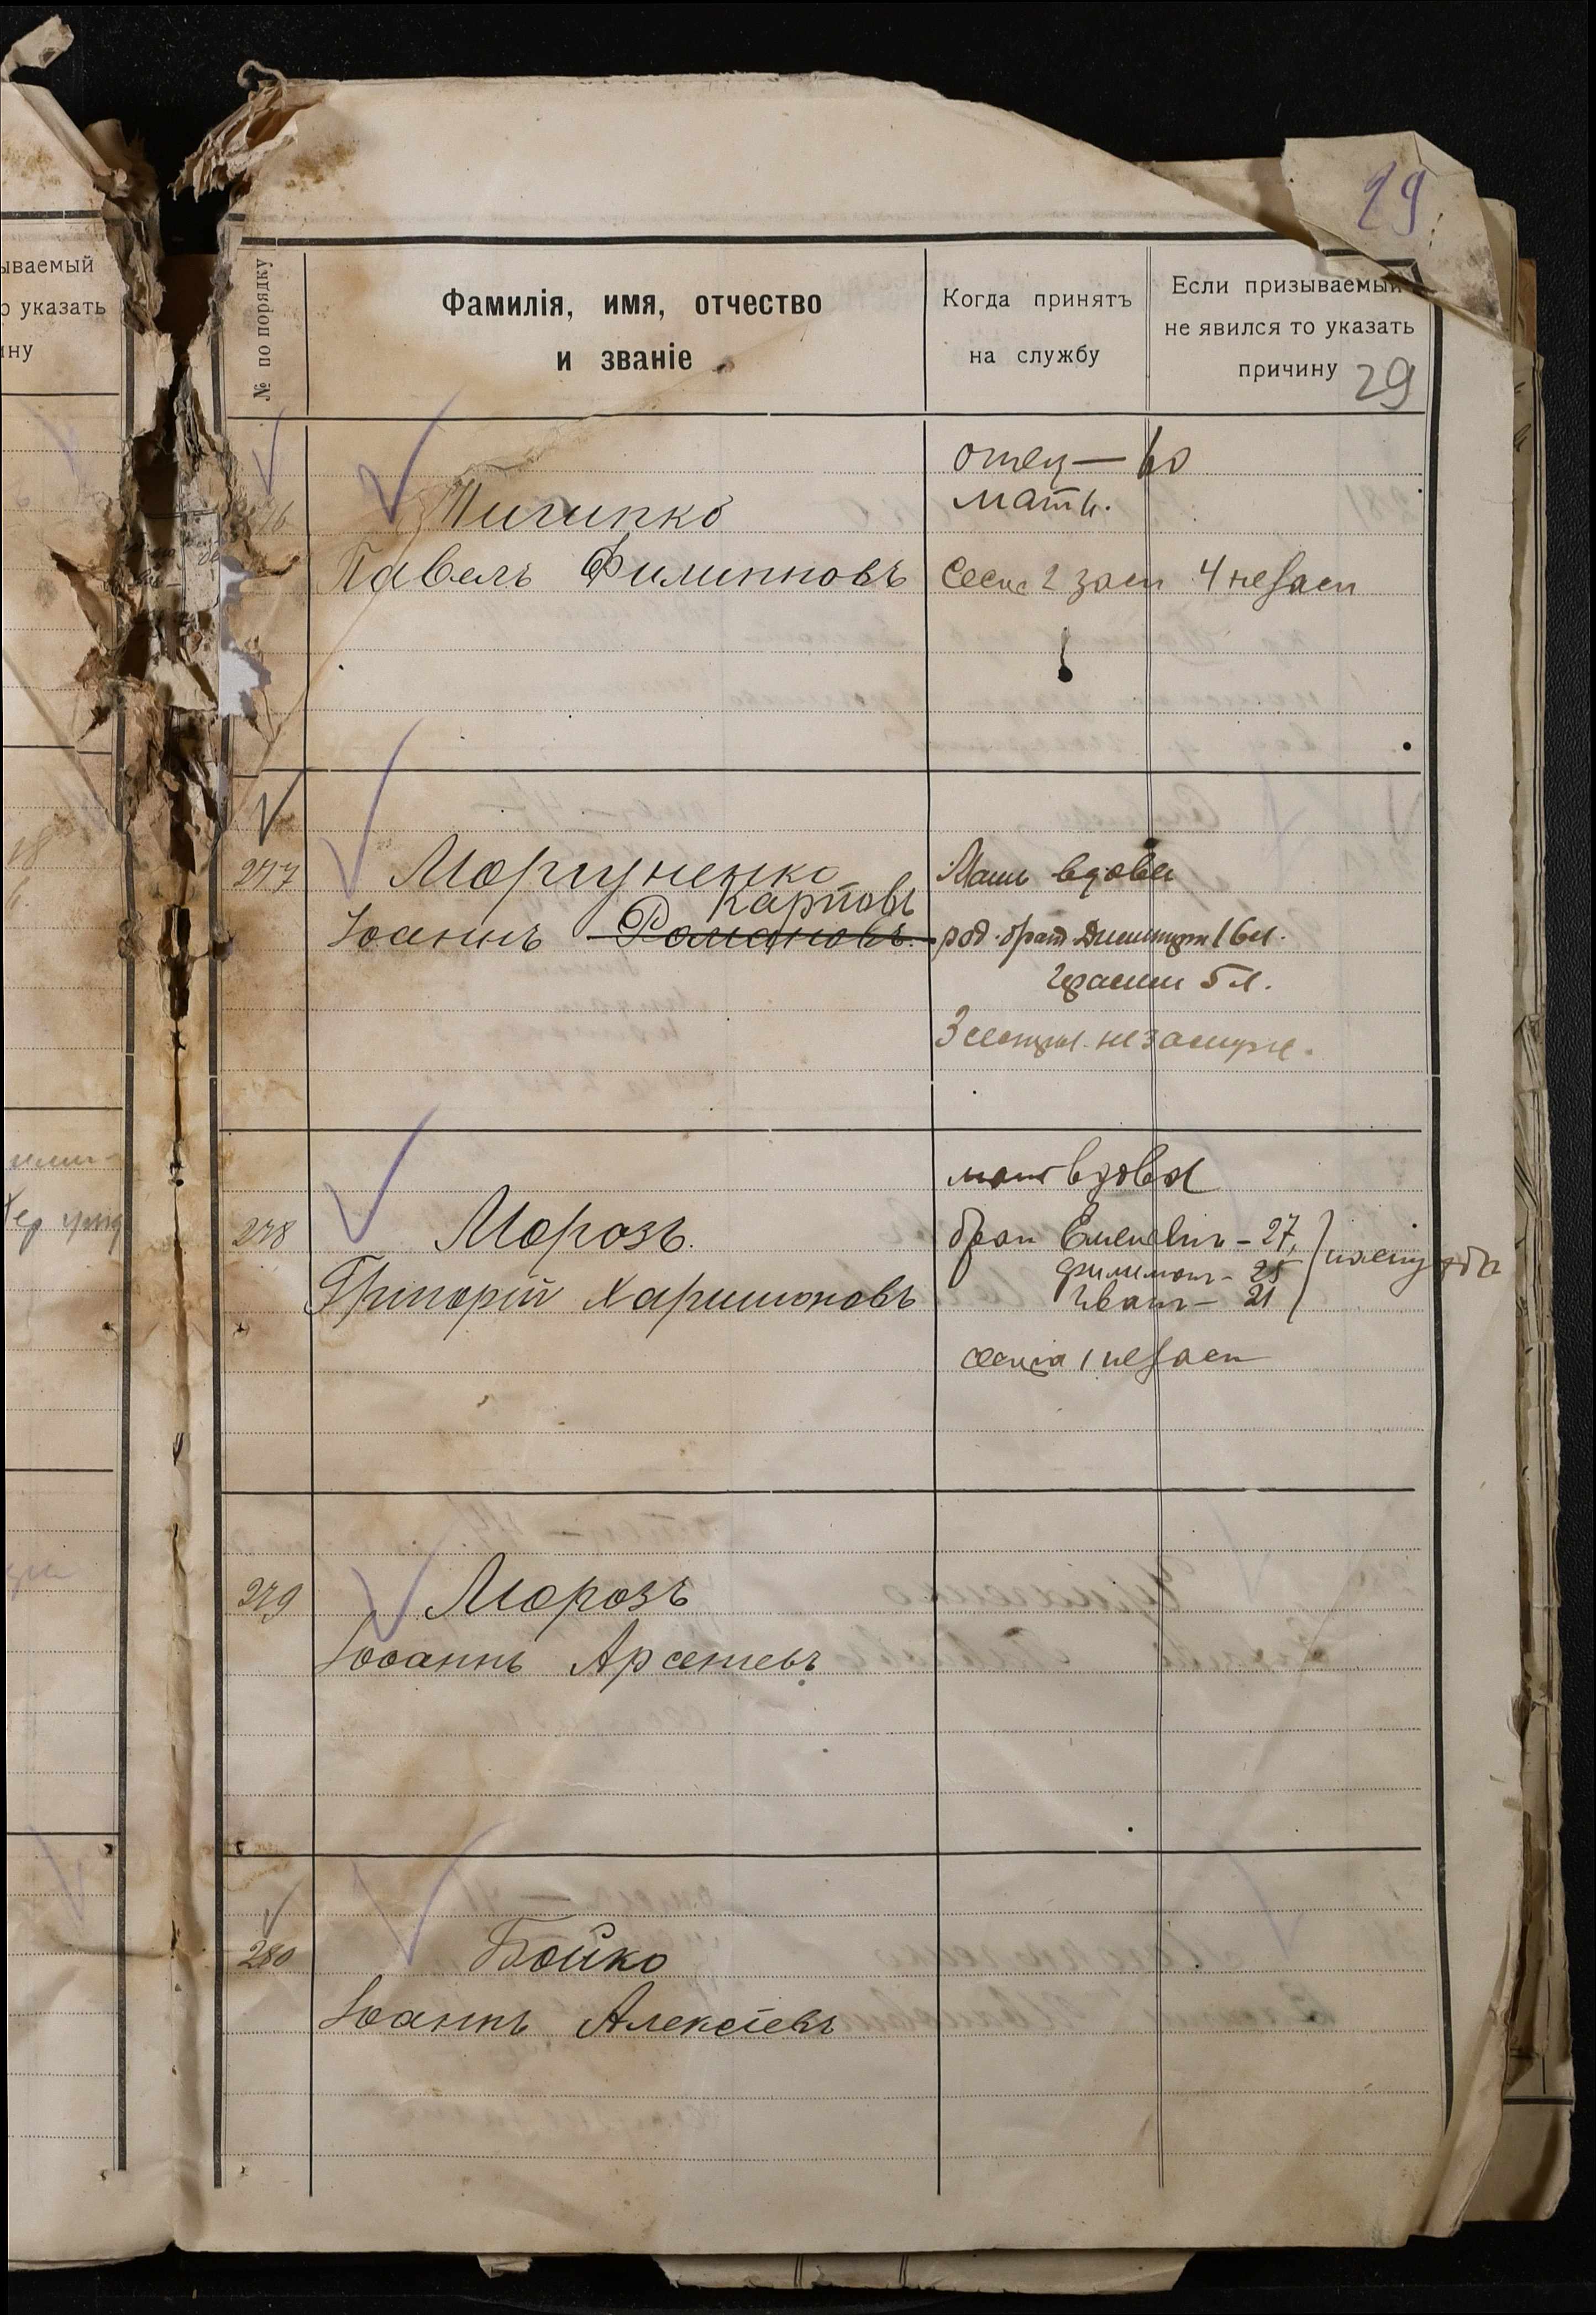 29
ываемый
о указать
ину
№ по порядку
Фамилія, имя, отчество
и званіе
Когда принятъ
на службу
Если призываемый
не явился то указать
причину
29
отец — 60
мать.
Пигипко
Павелъ Филипповъ
2 зам 4 незам
277
Моргуненко
Мать вдова
Карповъ
Іоаннъ Романовъ
род. брат Димитрий 16 л.
5 л.
3 сестры незамуж.
мать вдова
278
Морозъ.
брат Емельян - 27,
Филимон - 25
Григорій Харитоновъ
Иван - 21
сестра 1 незам
279
Морозъ
Іоаннъ Арсеніевъ
280
Бойко
Іоаннъ Алексіевъ